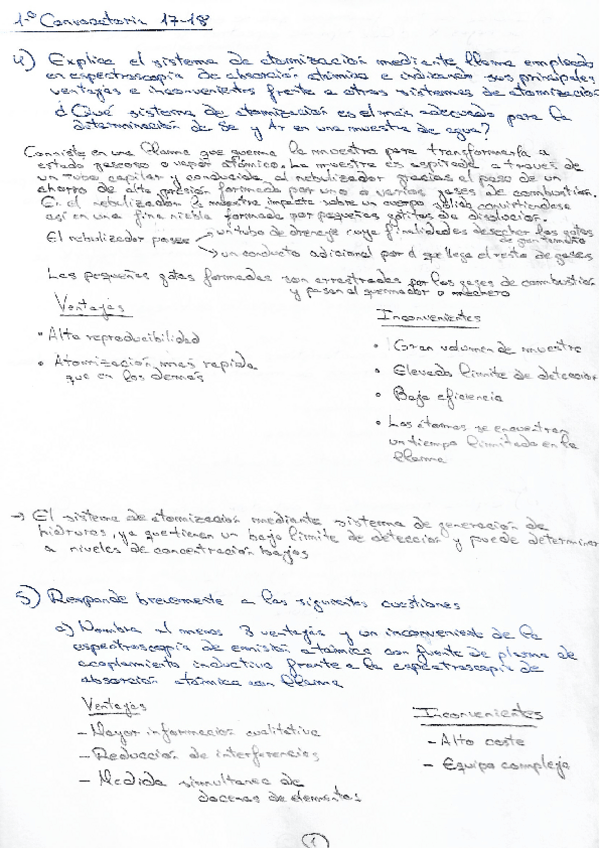 1º Convocatoria 17-18
4) Explica el sistema de atomización mediante llama empleado
en espectroscopia de absorción atómica e indicando sus principales
ventajas e inconvenientes frente a otros sistemas de atomización
¿Qué sistema de atomización es el más adecuado para la
determinación de Se y Ar en una muestra de agua?
Consiste en una llama que quema la muestra para transformarla a
estado gaseoso o vapor atómico. La muestra es aspirada a través de
un tubo capilar y conducida al nebulizador gracias al paso de un
chorro de alta presión formada por uno o varios gases de combustión.
En el nebulizador la muestra impacta sobre un cuerpo sólido convirtiendose
así en una fina niebla formada por pequeñas gotitas de disolución.
El nebulizador posee → un tubo de drenaje cuya finalidades desechar las gotas
de gran tamaño
→ un conducto adicional por el que llega el resto de gases
Las pequeñas gotas formadas son arrastradas por los gases de combustión
y pasan al quemador o mechero
Ventajas
• Alta reproducibilidad
• Atomización mas rapida
que en los demás
Inconvenientes
• Gran volumen de muestra
• Elevado límite de detección
• Baja eficiencia
• Los átomos se encuentran
un tiempo limitado en la
llama
→ El sistema de atomización mediante sistema de generación de
hidruros, ya que tienen un bajo límite de detección y puede determinar
a niveles de concentración bajos
5) Responde brevemente a las siguientes cuestiones
a) Nombra al menos 3 ventajas y un inconveniente de la
espectroscopía de emisión atómica con fuente de plasma de
acoplamiento inductivo frente a la espectroscopía de
absorción atómica con llama
Ventajas
- Mayor informacion cualitativa
- Reducción de interferencias
- Medida simultanea de
docenas de elementos
Inconvenientes
- Alto coste
- Equipo complejo
1